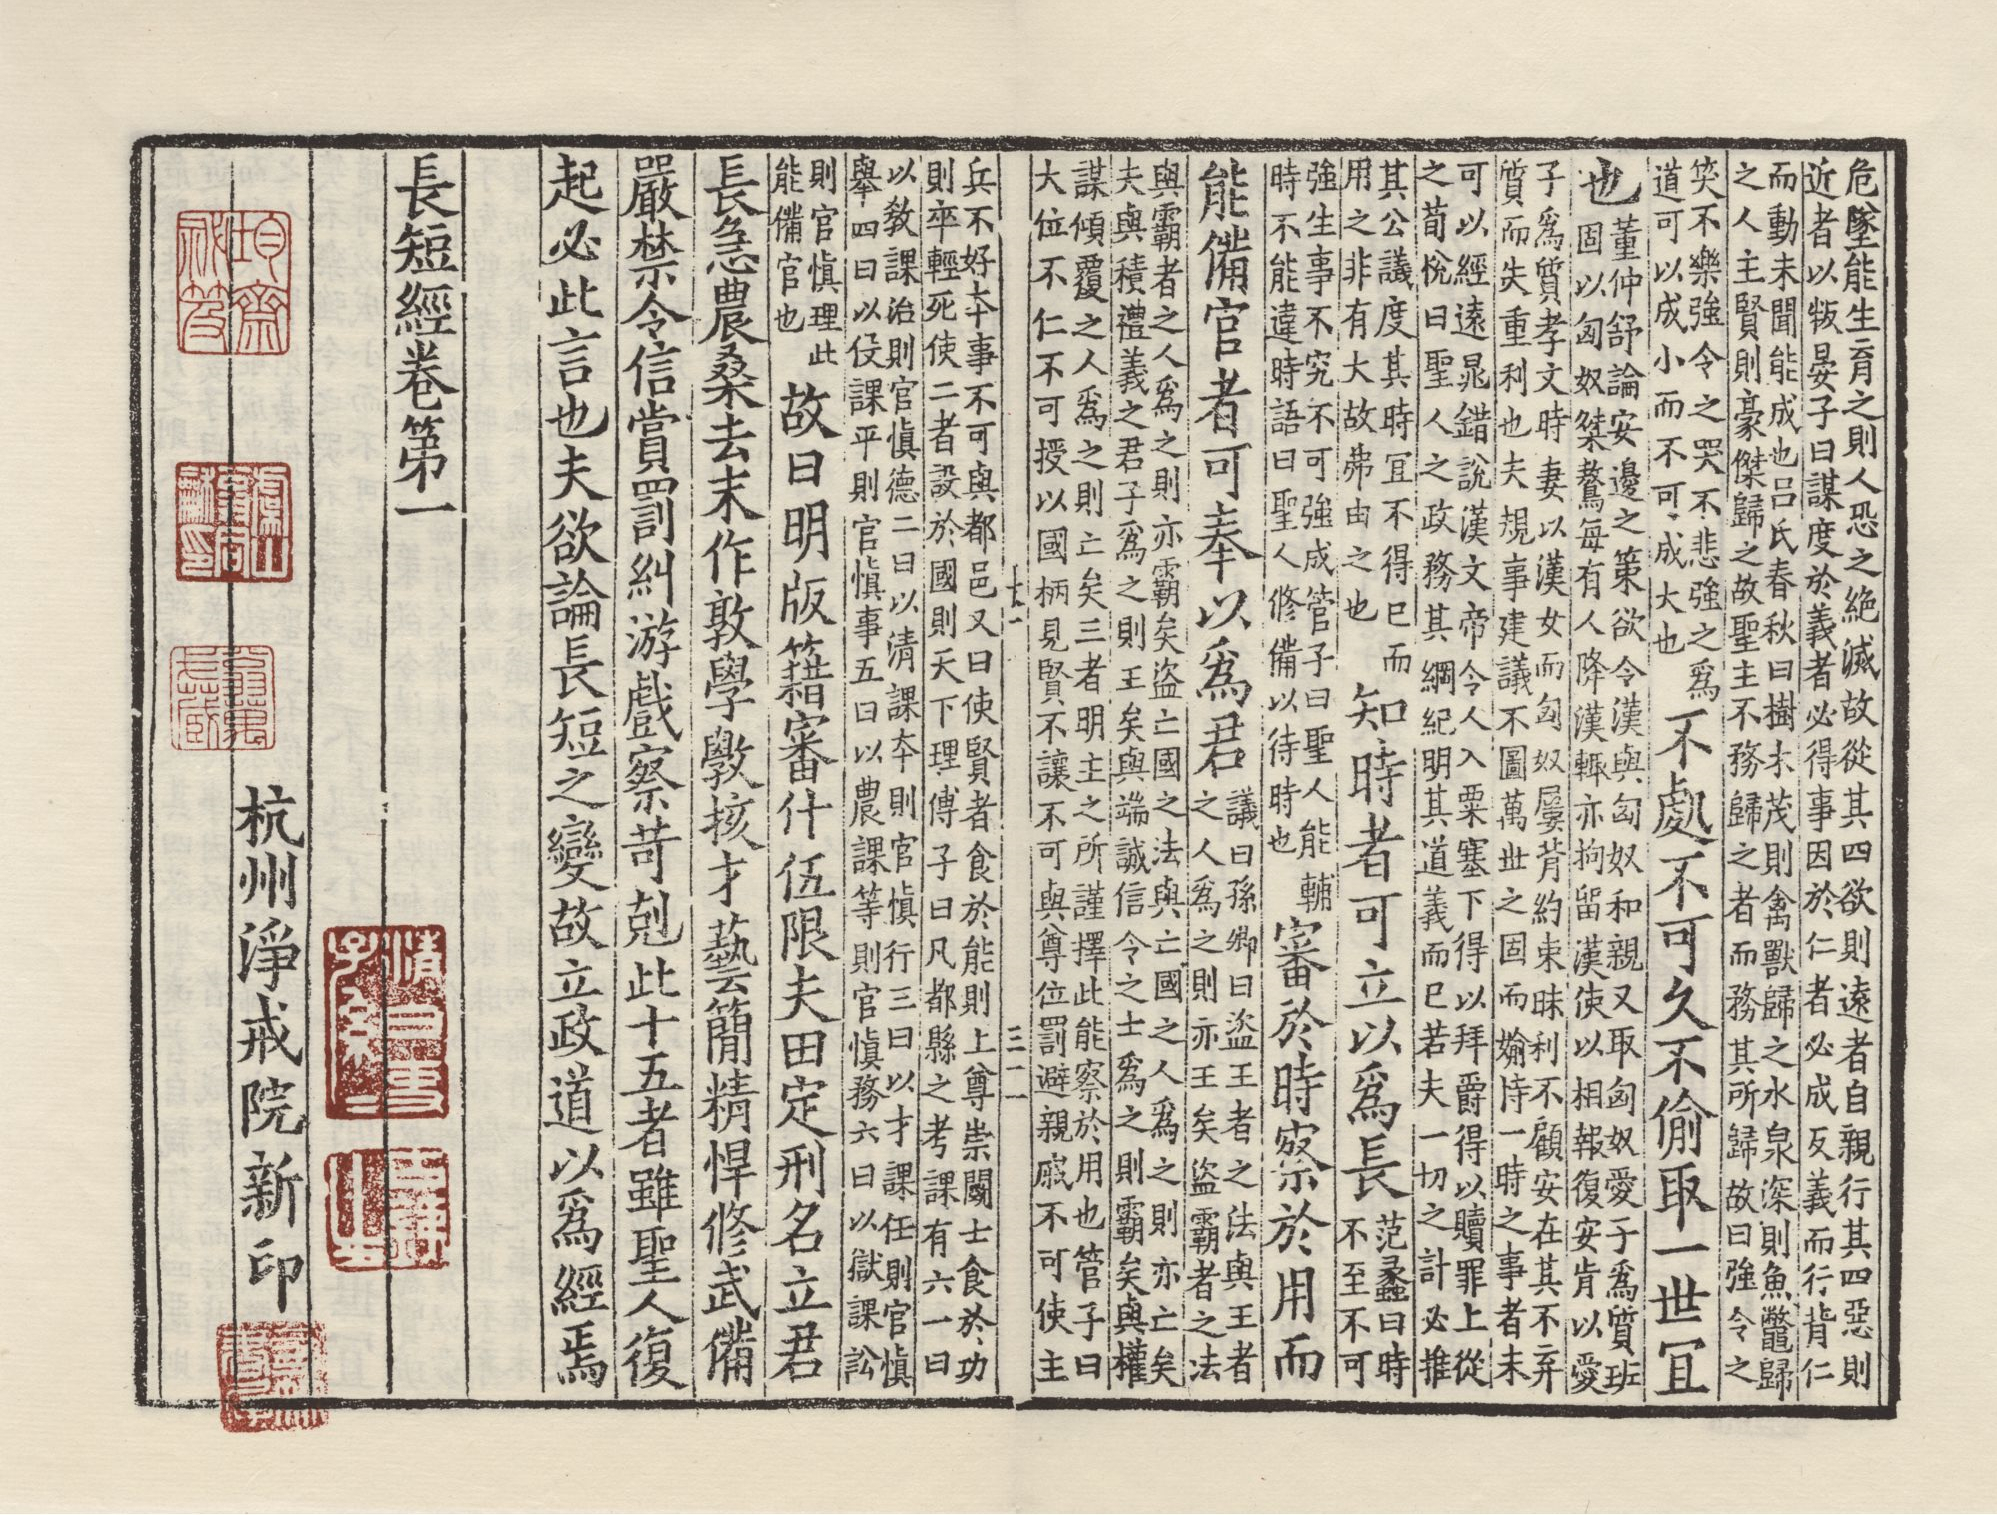 危墜能生育之則人恐之絶滅故從其四欲則遠者自親行其四惡則
近者以叛晏子曰謀度於義者必得事因於仁者必成反義而行背仁
而動未聞能成也吕氏春秋曰樹木茂則禽獸歸之水泉深則魚鼈歸
之人主賢則豪傑歸之故聖主不務歸之者而務其所歸故曰強令之
笑不樂強令之哭不悲強之爲
道可以成小而不可成大也
不處不可久不偷取一世冝
也
董仲舒論安邊之策欲令漢與匈奴和親又取匈奴愛子爲質班
固以匈奴桀驁每有人降漢輒亦拘留漢使以相報復安肯以愛
子爲質孝文時妻以漢女而匈奴屢背約束昧利不顧安在其不弃
質而失重利也夫規事建議不圖萬世之固而媮恃一時之事者未
可以經遠晁錯説漢文帝令人入粟塞下得以拜爵得以贖罪上從
之荀悦曰聖人之政務其綱紀明其道義而已若夫一切之計必推
其公議度其時冝不得已而
用之非有大故弗由之也
知時者可立以爲長
范蠡曰時
不至不可
強生事不究不可強成管子曰聖人能輔
時不能違時語曰聖人修備以待時也
審於時察於用而
能備官者可奉以爲君
議曰孫卿曰盗王者之法與王者
之人爲之則亦王矣盗霸者之法
與霸者之人爲之則亦霸矣盗亡國之法與亡國之人爲之則亦亡矣
夫與積禮義之君子爲之則王矣與端誠信令之士爲之則霸矣與權
謀傾覆之人爲之則亡矣三者明主之所謹擇此能察於用也管子曰
大位不仁不可授以國柄見賢不讓不可與尊位罰避親戚不可使主
三二
兵不好本事不可與都邑又曰使賢者食於能則上尊崇鬭士食於功
則卒輕死使二者設於國則天下理傅子曰凡都縣之考課有六一曰
以教課治則官慎德二曰以清課本則官慎行三曰以才課任則官慎
舉四曰以役課平則官慎事五曰以農課等則官慎務六曰以獄課訟
則官慎理此
能備官也
故曰明版籍審什伍限夫田定刑名立君
長急農桑去末作敦學斆挍才藝簡精悍修武備
嚴禁令信賞罰糾游戲察苛剋此十五者雖聖人復
起必此言也夫欲論長短之變故立政道以爲經焉
長短經卷第一
杭州淨戒院新印